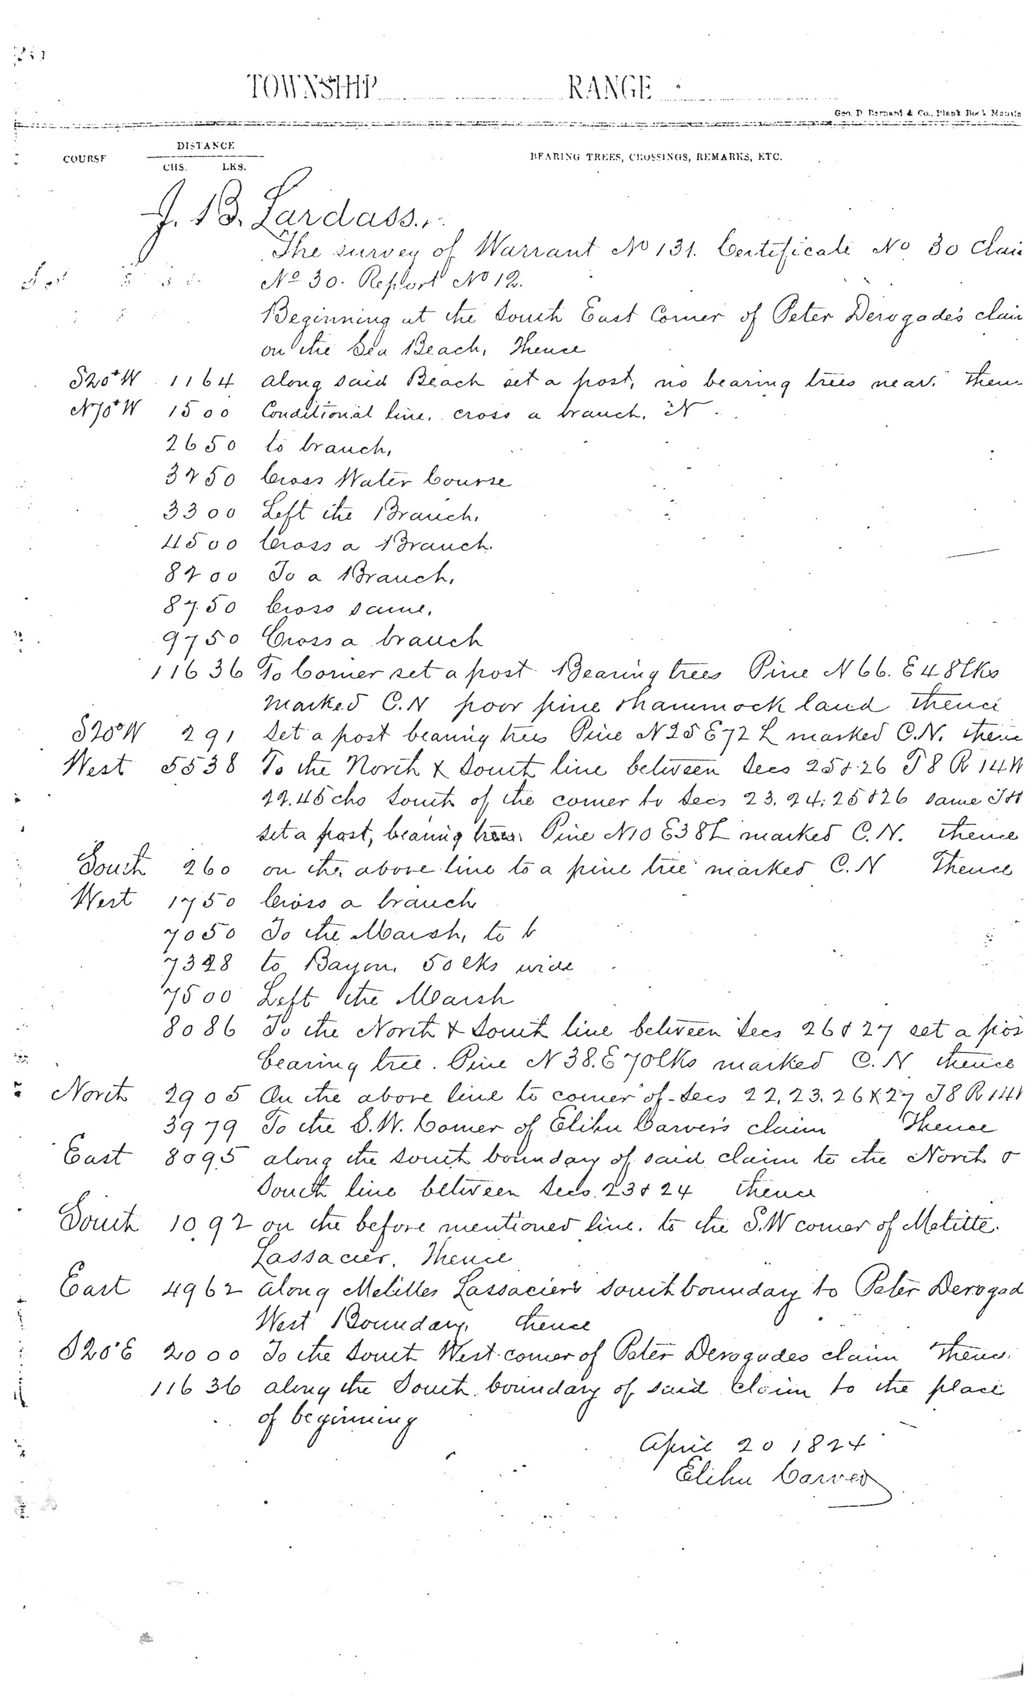 TOWNSHIP RANGE
Geo. D. Barnard & Co., Blank Book
COURSE DISTANCE BEARING TREES, CROSSINGS, REMARKS, ETC.
CHS. LKS.
J. B. Lardass.
The survey of Warrant No 131. Certificate No 30 Clai
No 30. Report No 12.
Beginning at the South East Corner of Peter Derogade's clai
on the Sea Beach, Thence
S20°W 1164 along said Beach set a post, no bearing trees near. then
N70°W 1500 Conditional line. cross a branch. N
2650 to branch,
3250 Cross Water Course
3300 Left the Branch.
4500 Cross a Branch.
8200 To a Branch,
8750 Cross same,
9750 Cross a branch
11636 To Corner set a post Bearing trees Pine N66. E48lks
marked C.N poor pine & hammock land thence
S20°W 291 Set a post bearing trees Pine N25E72L marked C.N. thence
West 5538 To the North & South line between Secs 25&26 T8 R14W
22.45chs South of the corner to Secs 23. 24. 25&26 same
set a post, bearing trees. Pine N10E38L marked C.N. thence
South 260 on the above line to a pine tree marked C.N Thence
West 1750 Cross a branch
7050 To the Marsh, to b
7328 to Bayou, 50lks wide
7500 Left the Marsh
8086 To the North & South line between Secs 26&27 set a pos
bearing tree. Pine N38.E70lks marked C.N. thence
North 2905 On the above line to corner of Secs 22, 23. 26&27 T8 R14W
3979 To the S.W. Corner of Elihu Carver's claim Thence
East 8095 along the south boundary of said claim to the North &
South line between Secs. 23&24 thence
South 1092 on the before mentioned line. to the S.W corner of Melitte
Lassacier. Thence
East 4962 along Melittes Lassacier's south boundary to Peter Derogad
West Boundary, thence
S20°E 2000 To the South West corner of Peter Derogades claim Thence
11636 along the South boundary of said claim to the place
of beginning
April 20 1824
Elihu Carver